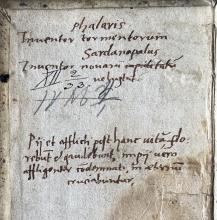 Phalaris
Inventor tormentorum
Sardanapalus
Inventor novarum
voluptat
Pij et afflicti post hanc vitā flo
rebūt et gaudebunt, impij vero
affligentur cōdemnati, in æternū
cruciabuntur